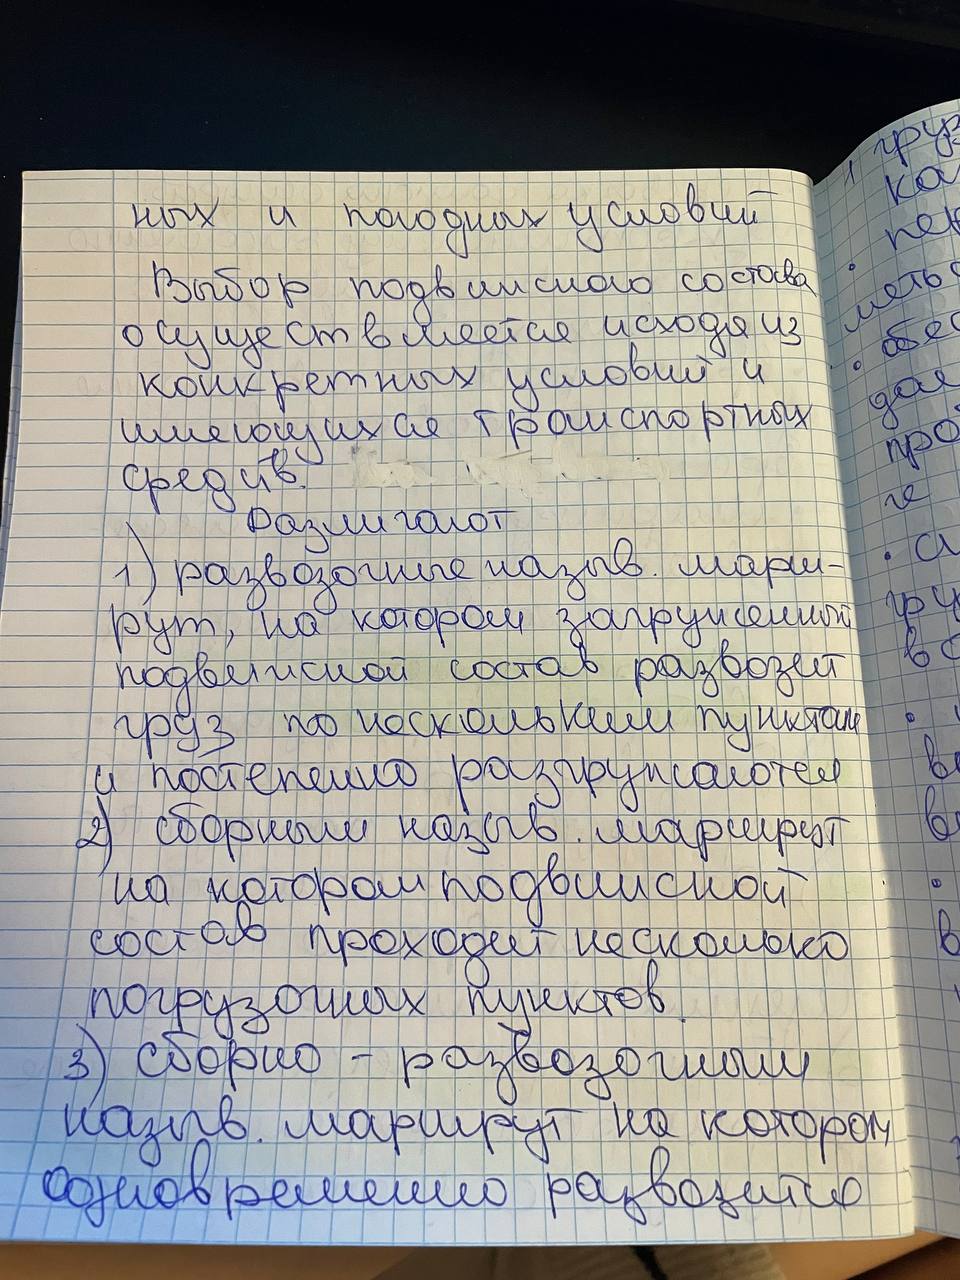 ных и погодных условий
Выбор подвижного состава
осуществляется исходя из
конкретных условий и
имеющихся транспортных
средств.
Различают
1) развозочные назыв. марш-
рут, на котором загруженный
подвежной состав развозит
груз по нескольким пунктам
и постепенно разгружаются
2) сборным назыв. маршрут
на котором подвижной
состав проходит несколько
погрузочных пунктов.
3) сборно - развозочным
назыв. маршрут на котором
одновременно
гру
ка
пер
мать
• обес
дал
про
ге
• сл
гру
в с
•
ве
в
•
в